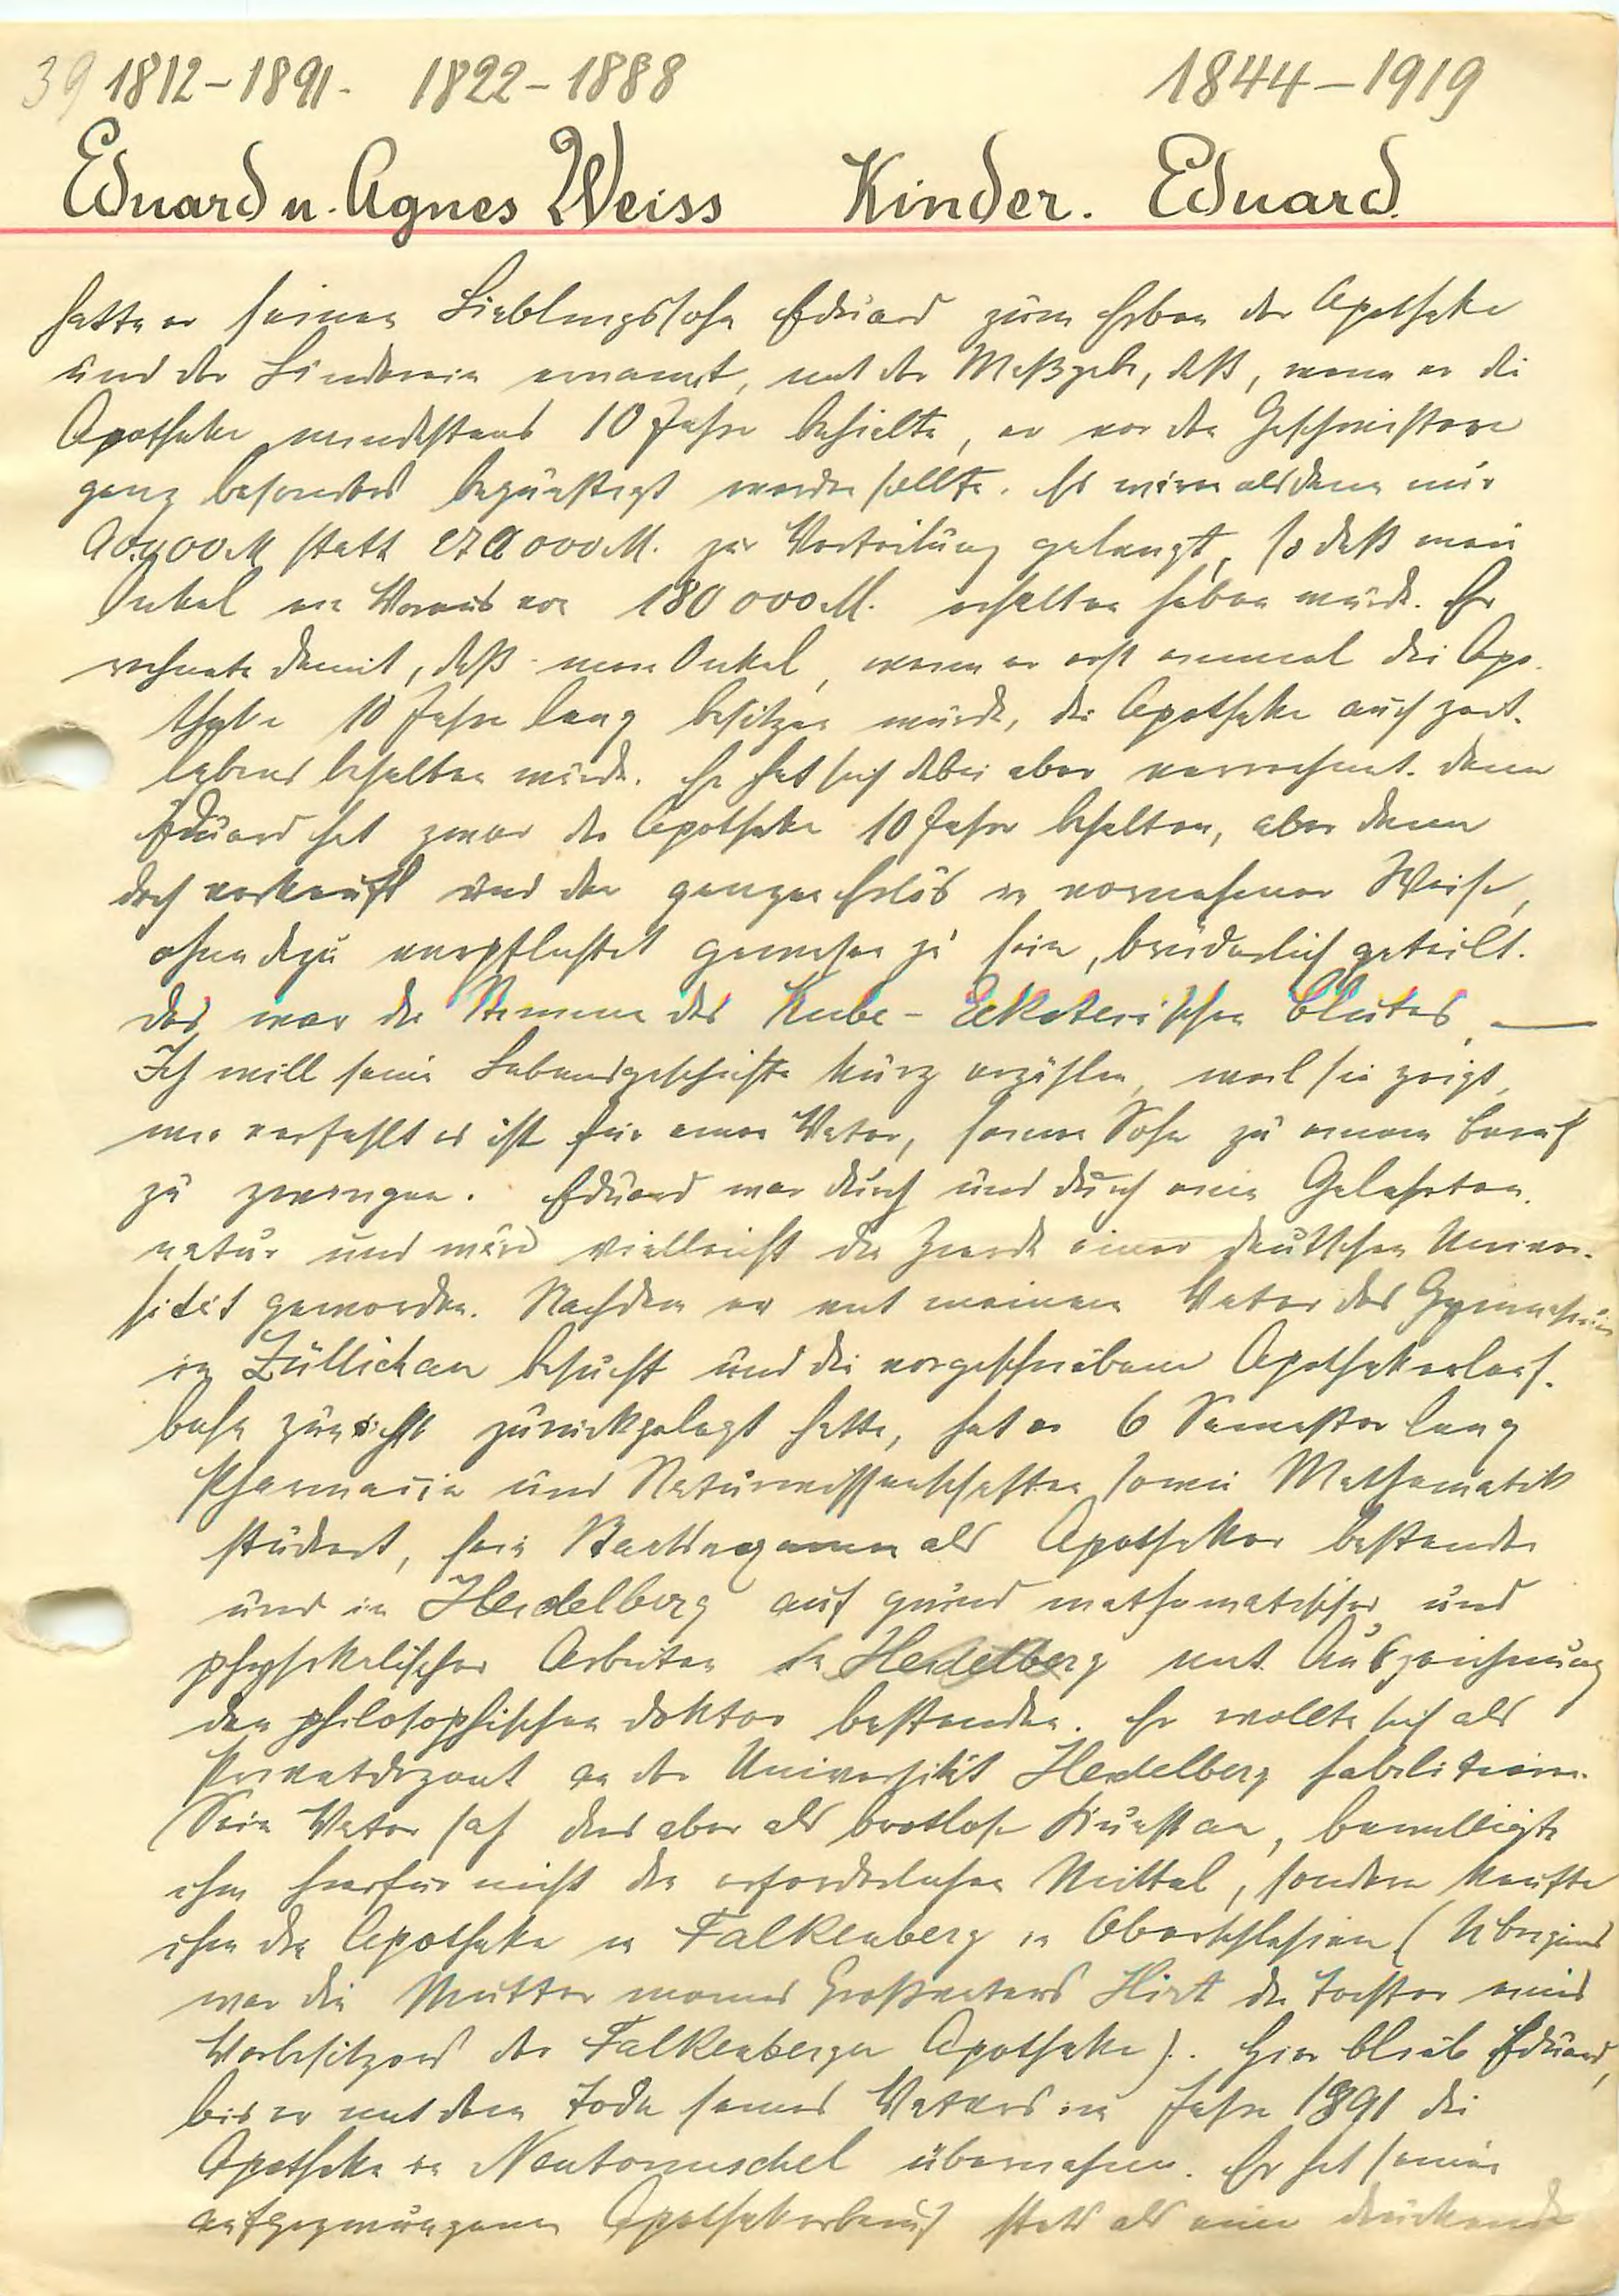 39 1812–1891. 1822–1888 1844–1919
Eduard u. Agnes Weiss Kinder. Eduard.
hatte er seinen Lieblingssohn Eduard zum Erben der Apotheke
und der Ländereien ernannt, mit der Maßgabe, daß, wenn er die
Apotheke mindestens 10 Jahre behielte, er vor den Geschwistern
ganz besonders begünstigt werden sollte. Es wären alsdann nur
90.000 M statt 270 000 M. zur Verteilung gelangt, so daß mein
Onkel ein Voraus von 180 000 M. erhalten haben würde. Er
rechnete damit, daß mein Onkel, wenn er erst einmal die Apo-
theke 10 Jahre lang besitzen würde, die Apotheke auch zeit-
lebens behalten würde. Er hat sich dabei aber verrechnet. denn
Eduard hat zwar die Apotheke 10 Jahre behalten, aber dann
doch verkauft und den ganzen Erlös in vornehmer Weise,
ohne dazu verpflichtet gewesen zu sein, brüderlich geteilt.
Das war die Stimme des Blutes, —
Ich will seine Lebensgeschichte kurz erzählen, weil sie zeigt,
wie verfehlt es ist für einen Vater, seinen Sohn zu einem Beruf
zu zwingen. Eduard war durch und durch eine Gelehrten-
natur und wäre vielleicht die Zierde einer deutschen Univer-
sität geworden. Nachdem er mit meinem Vater das Gymnasium
in Züllichau besucht und die vorgeschriebene Apothekerlauf-
bahn zunächst zurückgelegt hatte, hat er 6 Semester lang
Pharmacie und Naturwissenschaften sowie Mathematik
studiert, sein Staatsexamen als Apotheker bestanden
und in Heidelberg auf grund mathematischer und
physikalischer Arbeiten in Heidelberg mit Auszeichnung
den philosophischen Doktor bestanden. Er wollte sich als
Privatdozent an der Universität Heidelberg habilitieren.
Sein Vater sah das aber als brotlose Kunst an, bewilligte
ihm hierfür nicht die erforderlichen Mittel, sondern kaufte
ihm die Apotheke in Falkenberg in Oberschlesien (Übrigens
war die Mutter meines Großvaters Hirt die Tochter eines
Vorbesitzers der Falkenberger Apotheke). Hier blieb Eduard,
bis er mit dem Tode seines Vaters im Jahre 1891 die
Apotheke in Neutomischel übernahm. Er hat seinen
aufgezwungenen Apothekerberuf stets als eine drückende